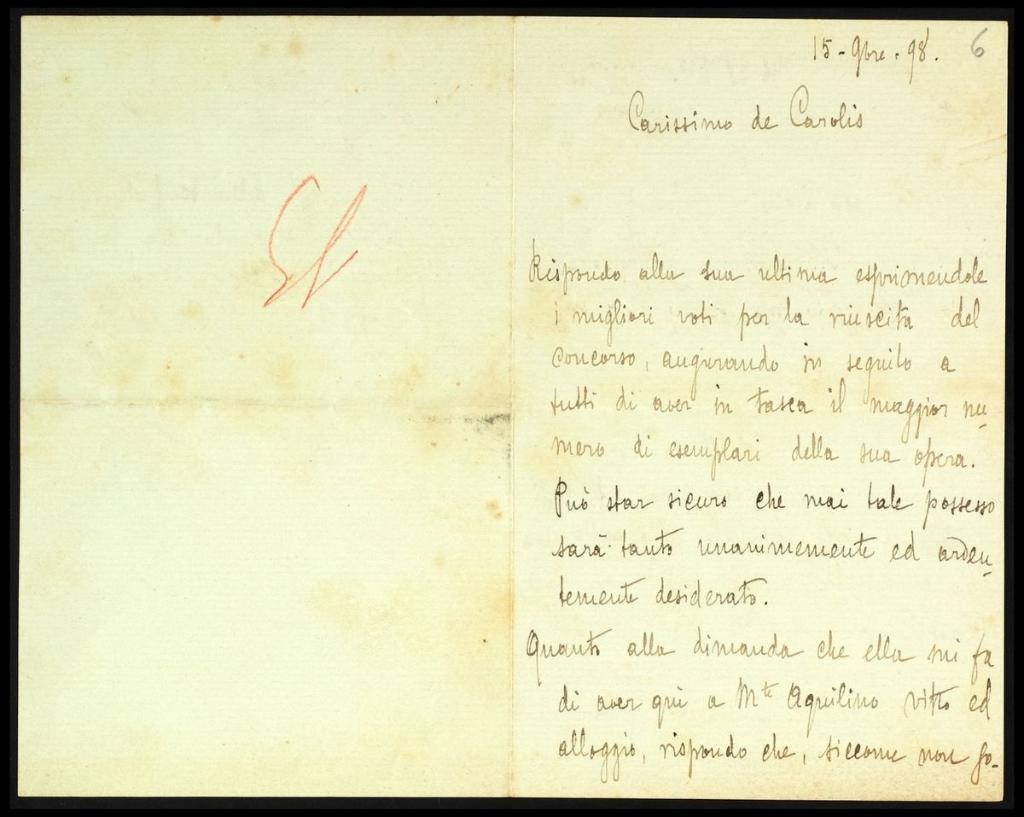 15 - 9bre . 98. 6
Carissimo de Carolis
Rispondo alla sua ultima esprimendole
i migliori voti per la riuscita del
concorso, augurando in seguito a
tutti di aver in tasca il maggior nu-
mero di esemplari della sua opera.
Può star sicuro che mai tale possesso
sarà tanto unanimemente ed arden-
temente desiderato.
Quanto alla dimanda che ella mi fa
di aver quì a Mte Aquilino vitto ed
alloggio, rispondo che, siccome non go-